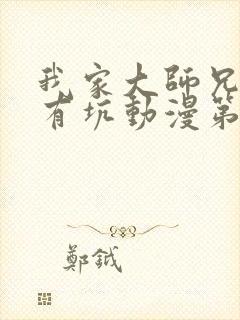 我家大師兄
有坑動漫第
鄭鉞